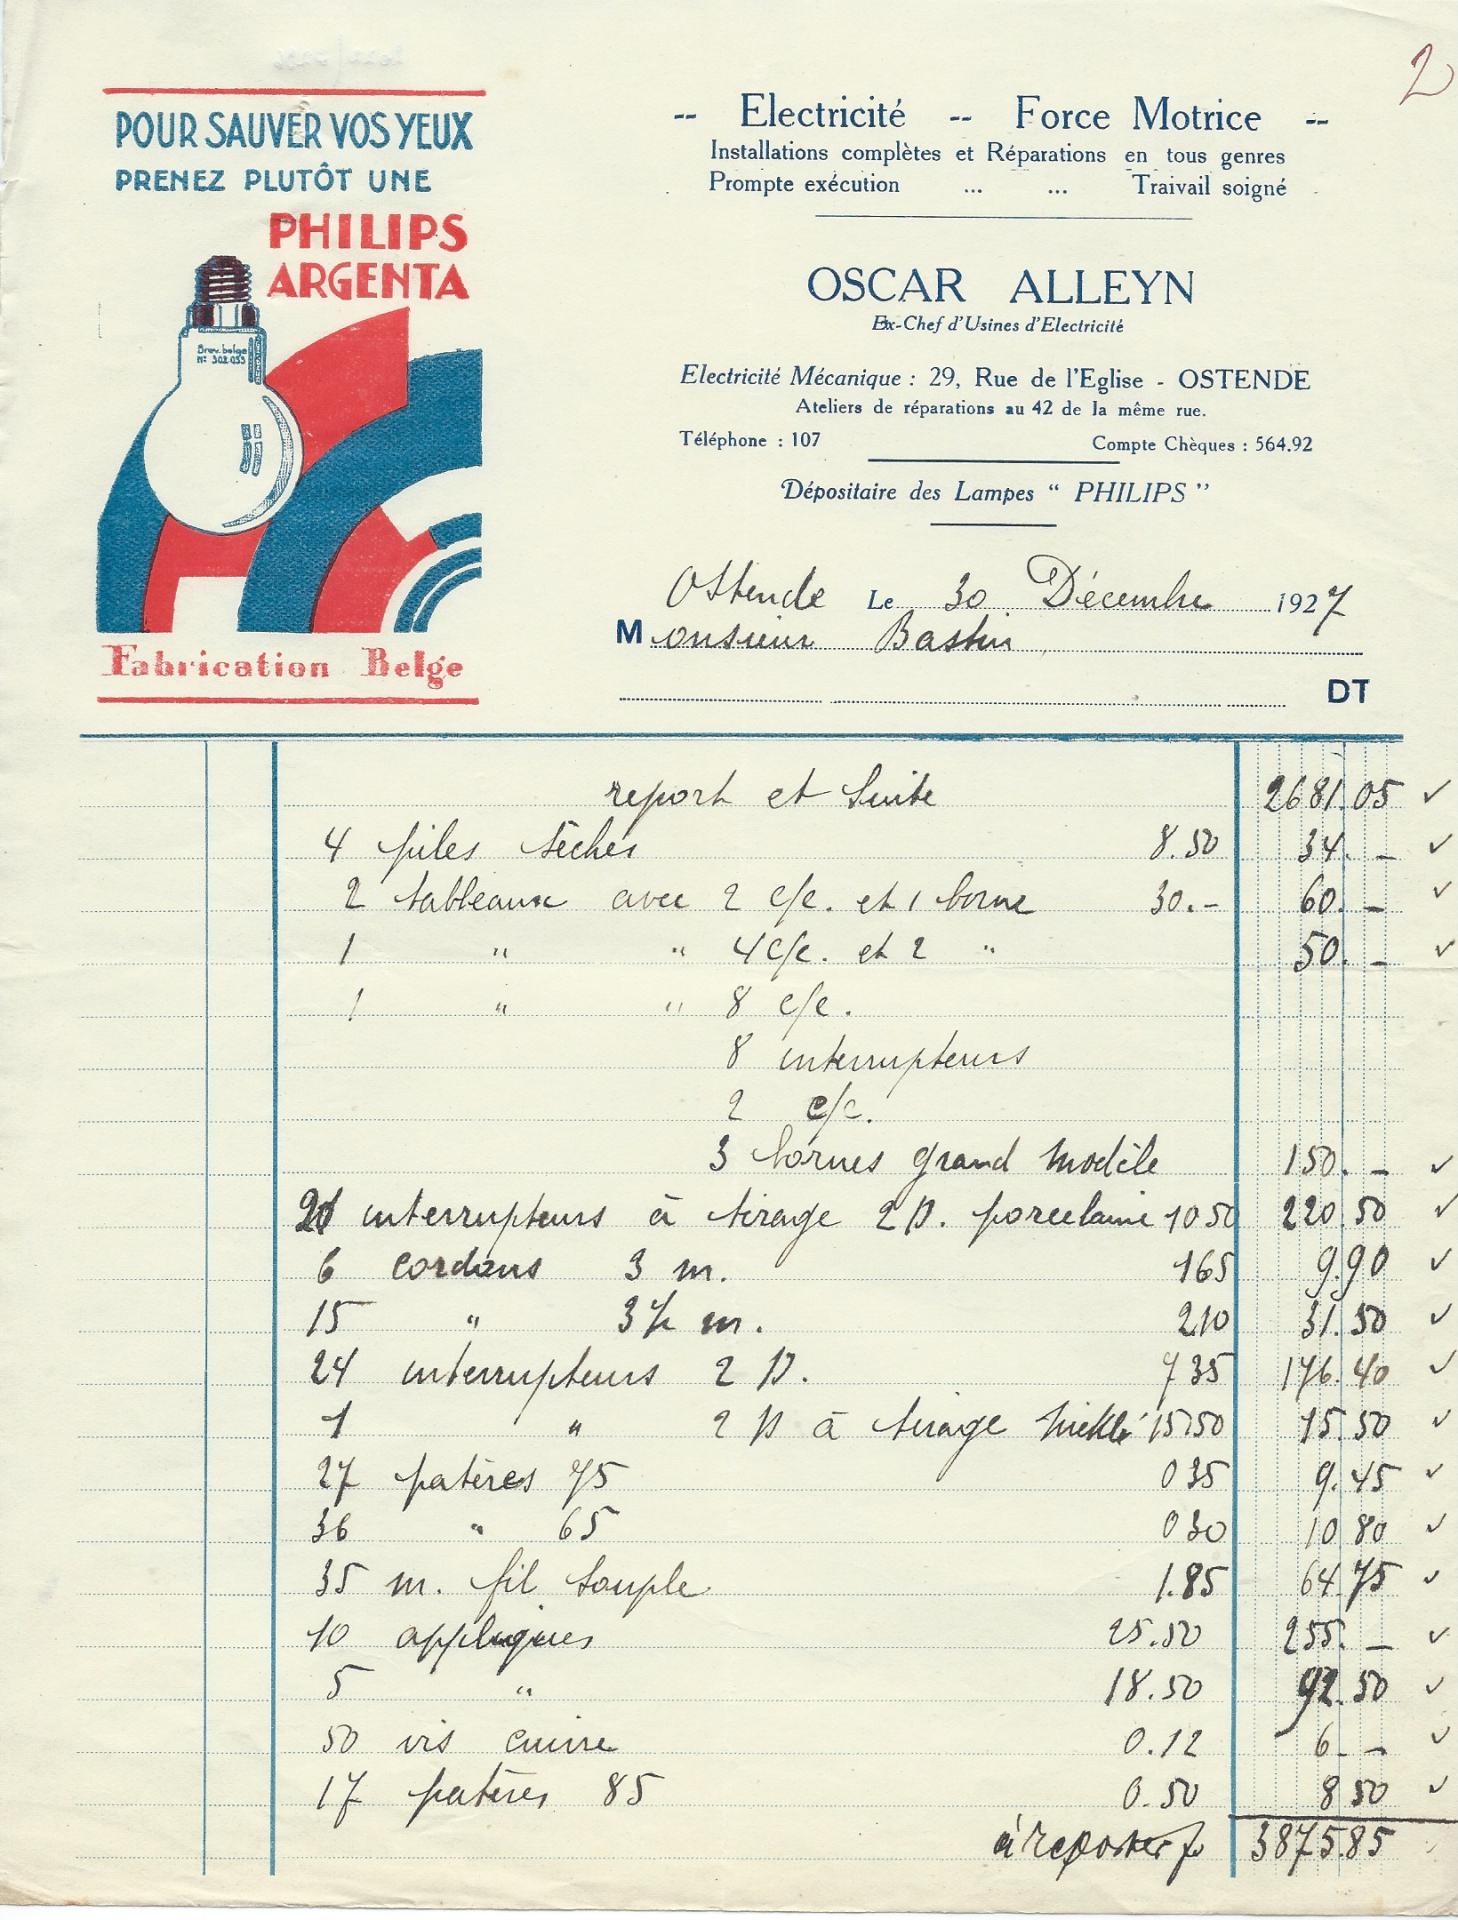 2
POUR SAUVER VOS YEUX
PRENEZ PLUTÔT UNE
PHILIPS
ARGENTA
Brev. belge
Nº 302.053
Fabrication Belge
-- Electricité -- Force Motrice --
Installations complètes et Réparations en tous genres
Prompte exécution ... ... Traivail soigné
OSCAR ALLEYN
Ex-Chef d'Usines d'Electricité
Electricité Mécanique : 29, Rue de l'Eglise - OSTENDE
Ateliers de réparations au 42 de la même rue.
Téléphone : 107 Compte Chèques : 564.92
Dépositaire des Lampes “ PHILIPS ”
Ostende Le 30 Décembre 1927
Monsieur Bastin
DT
report et suite 2681.05 ✓
4 piles sèches 8.50 34. – ✓
2 tableaux avec 2 c/c. et 1 borne 30.- 60. – ✓
1 " " 4 c/c. et 2 " 50. – ✓
1 " " 8 c/c.
8 interrupteurs
2 c/c.
3 bornes grand modèle 150. – ✓
21 interrupteurs à tirage 2 p. porcelaine 10 50 220 50 ✓
6 cordons 3 m. 1 65 9.90 ✓
15 " 3½ m. 2.10 31.50 ✓
24 interrupteurs 2 p. 7 35 176.40 ✓
1 " 2 p à tirage nickelé 15.50 15.50 ✓
27 patères 75 0 35 9.45 ✓
36 " 65 0 30 10 80 ✓
35 m. fil souple 1.85 64.75 ✓
10 appliques 25.50 255. – ✓
5 " 18.50 92.50 ✓
50 vis cuivre 0.12 6. – ✓
17 patères 85 0.50 8 50 ✓
à reporter fr 3875.85